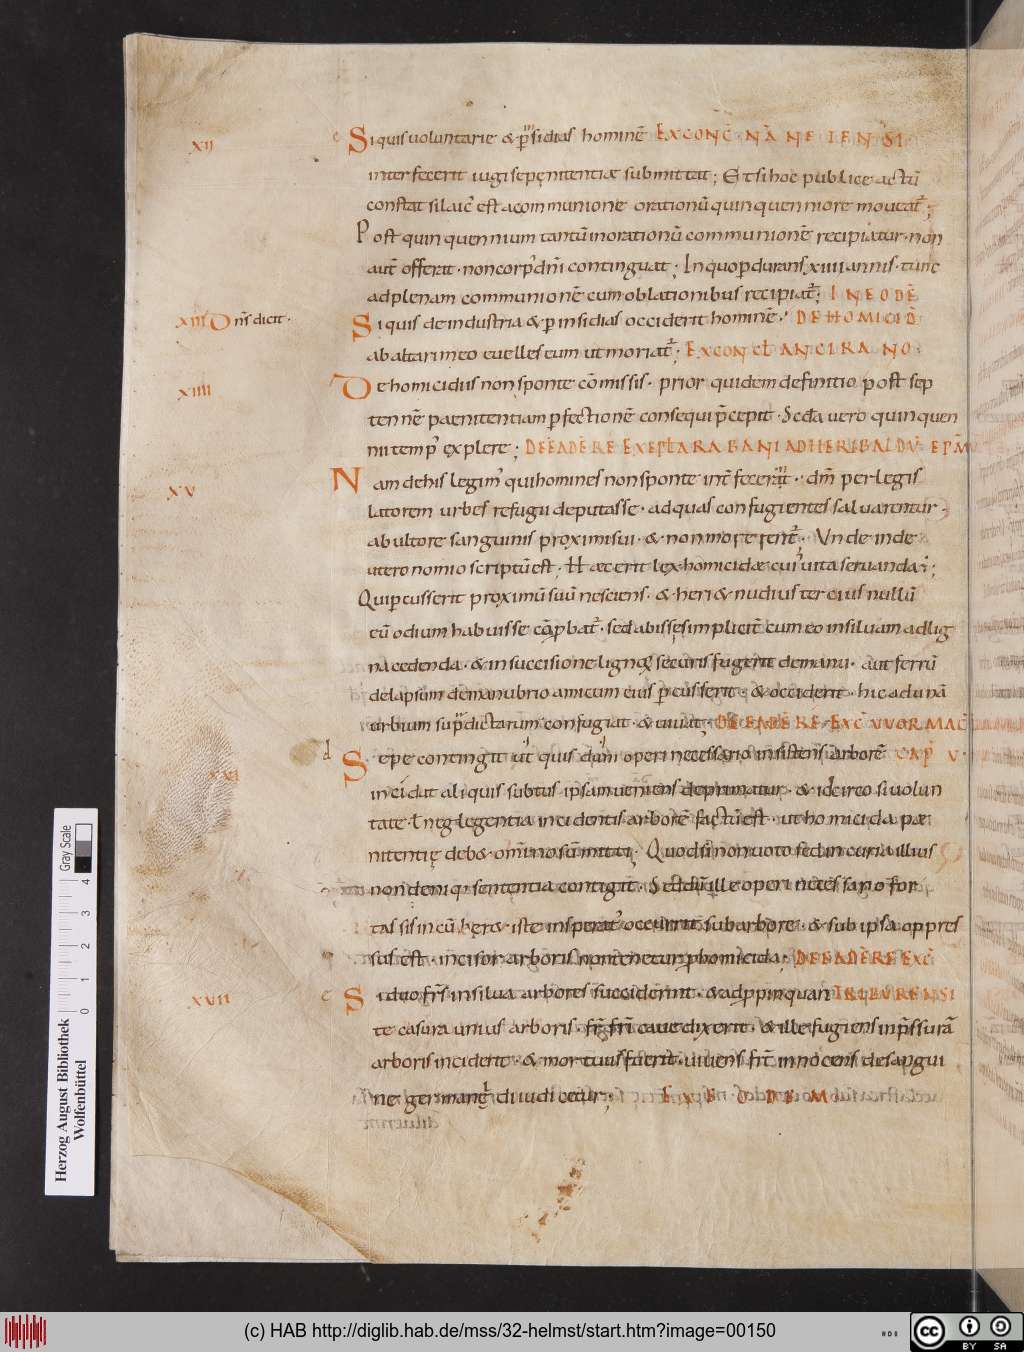 XII Siquis uoluntarie & p̄ insidias hominē EX CONC̄ · NĀNETENSI
interfecerit iugi se pęnitentiæ submittat; Et si hoc publice actū
constat si laic᾽ est a communione orationū quinquennio remoueat᾽;
Post quinquennium tantū in orationū communionē recipiatur · non
aut̄ offerat · non corp᾽ dn̄i contingat; In quo pdurans xiiii annis · tunc
ad plenam communionē cum oblationibus recipiat᾽; IN EODĒ
XIII Dn̄s dicit · Siquis de industria & p insidias occiderit hominē · DE HOMICID̄
ab altari meo euelles eum ut moriat᾽; EX CONCL̄ ANCIRANO ·
XIIII De homicidiis non sponte cōmissis · prior quidem definitio post sep
tennē paenitentiam pfectionē consequi p̄cepit · Scđa uero quinquen
nii temp᾽ explere; DE EADĒ RE EX EPL̄A RABANI AD HERIBALDŪ EPM̄
XV Nam de his legim᾽ qui homines non sponte int̄fecerint · dm̄ per legis
latorem urbes refugii deputasse · ad quas confugientes saluarentur
ab ultore sanguinis proximi sui · & non morerent᾽ · Vnde in de
uteronomio scriptū est; Hæc erit lex homicidæ cui᾽ uita seruanda ÷;
Qui pcusserit proximū suū nesciens · & heri & nudius tertius nullū
cū odium habuisse cōpbat᾽ · sed abisse simplicit̄ cum eo in siluam ad lig
na cedenda · & in succisione lignoꝝ securis fugerit de manu · aut ferrū
delapsum de manubrio amicum eius pcusserit · & occiderit · hic ad unā
urbium sup̄dictarum confugiat · & uiuat; DE EADĒ RE EX C̄ VVORMAC̄
XVI d Sepe contingit ut quis dum operi necessario insistens arborē CAP̄ V ·
incidat aliquis subtus ipsam ueniens deprimatur · & idcirco si uolun
tate · ł neglegentia incidentis arborē factū est · ut homicida pæ
nitentię deb& · omīno sūmitti · Quod si non uoto sed incuria illius
non deniq; sententia contigit · Sed dū ille operi necessario for
tassis incūber& · iste insperat᾽ occurrit sub arbore · & sub ipsa oppres
sus est · incisor arboris non tenetur p homicida; DE EADĒ RE EX C̄
XVII c Si duo fr̄s in silua arbores succiderint · & adppinquan TRIBVRENSI
te casura unius arboris · fr̄ fr̄i caue dixerit · & ille fugiens in p̄ssurā
arboris inciderit · & mortuus fuerit · uiuens fr̄ innocens de sangui
ne germani diiudicetur; EX EODEM
Herzog August Bibliothek
Wolfenbüttel
Gray Scale
0 1 2 3 4
(c) HAB http://diglib.hab.de/mss/32-helmst/start.htm?image=00150
cc BY SA